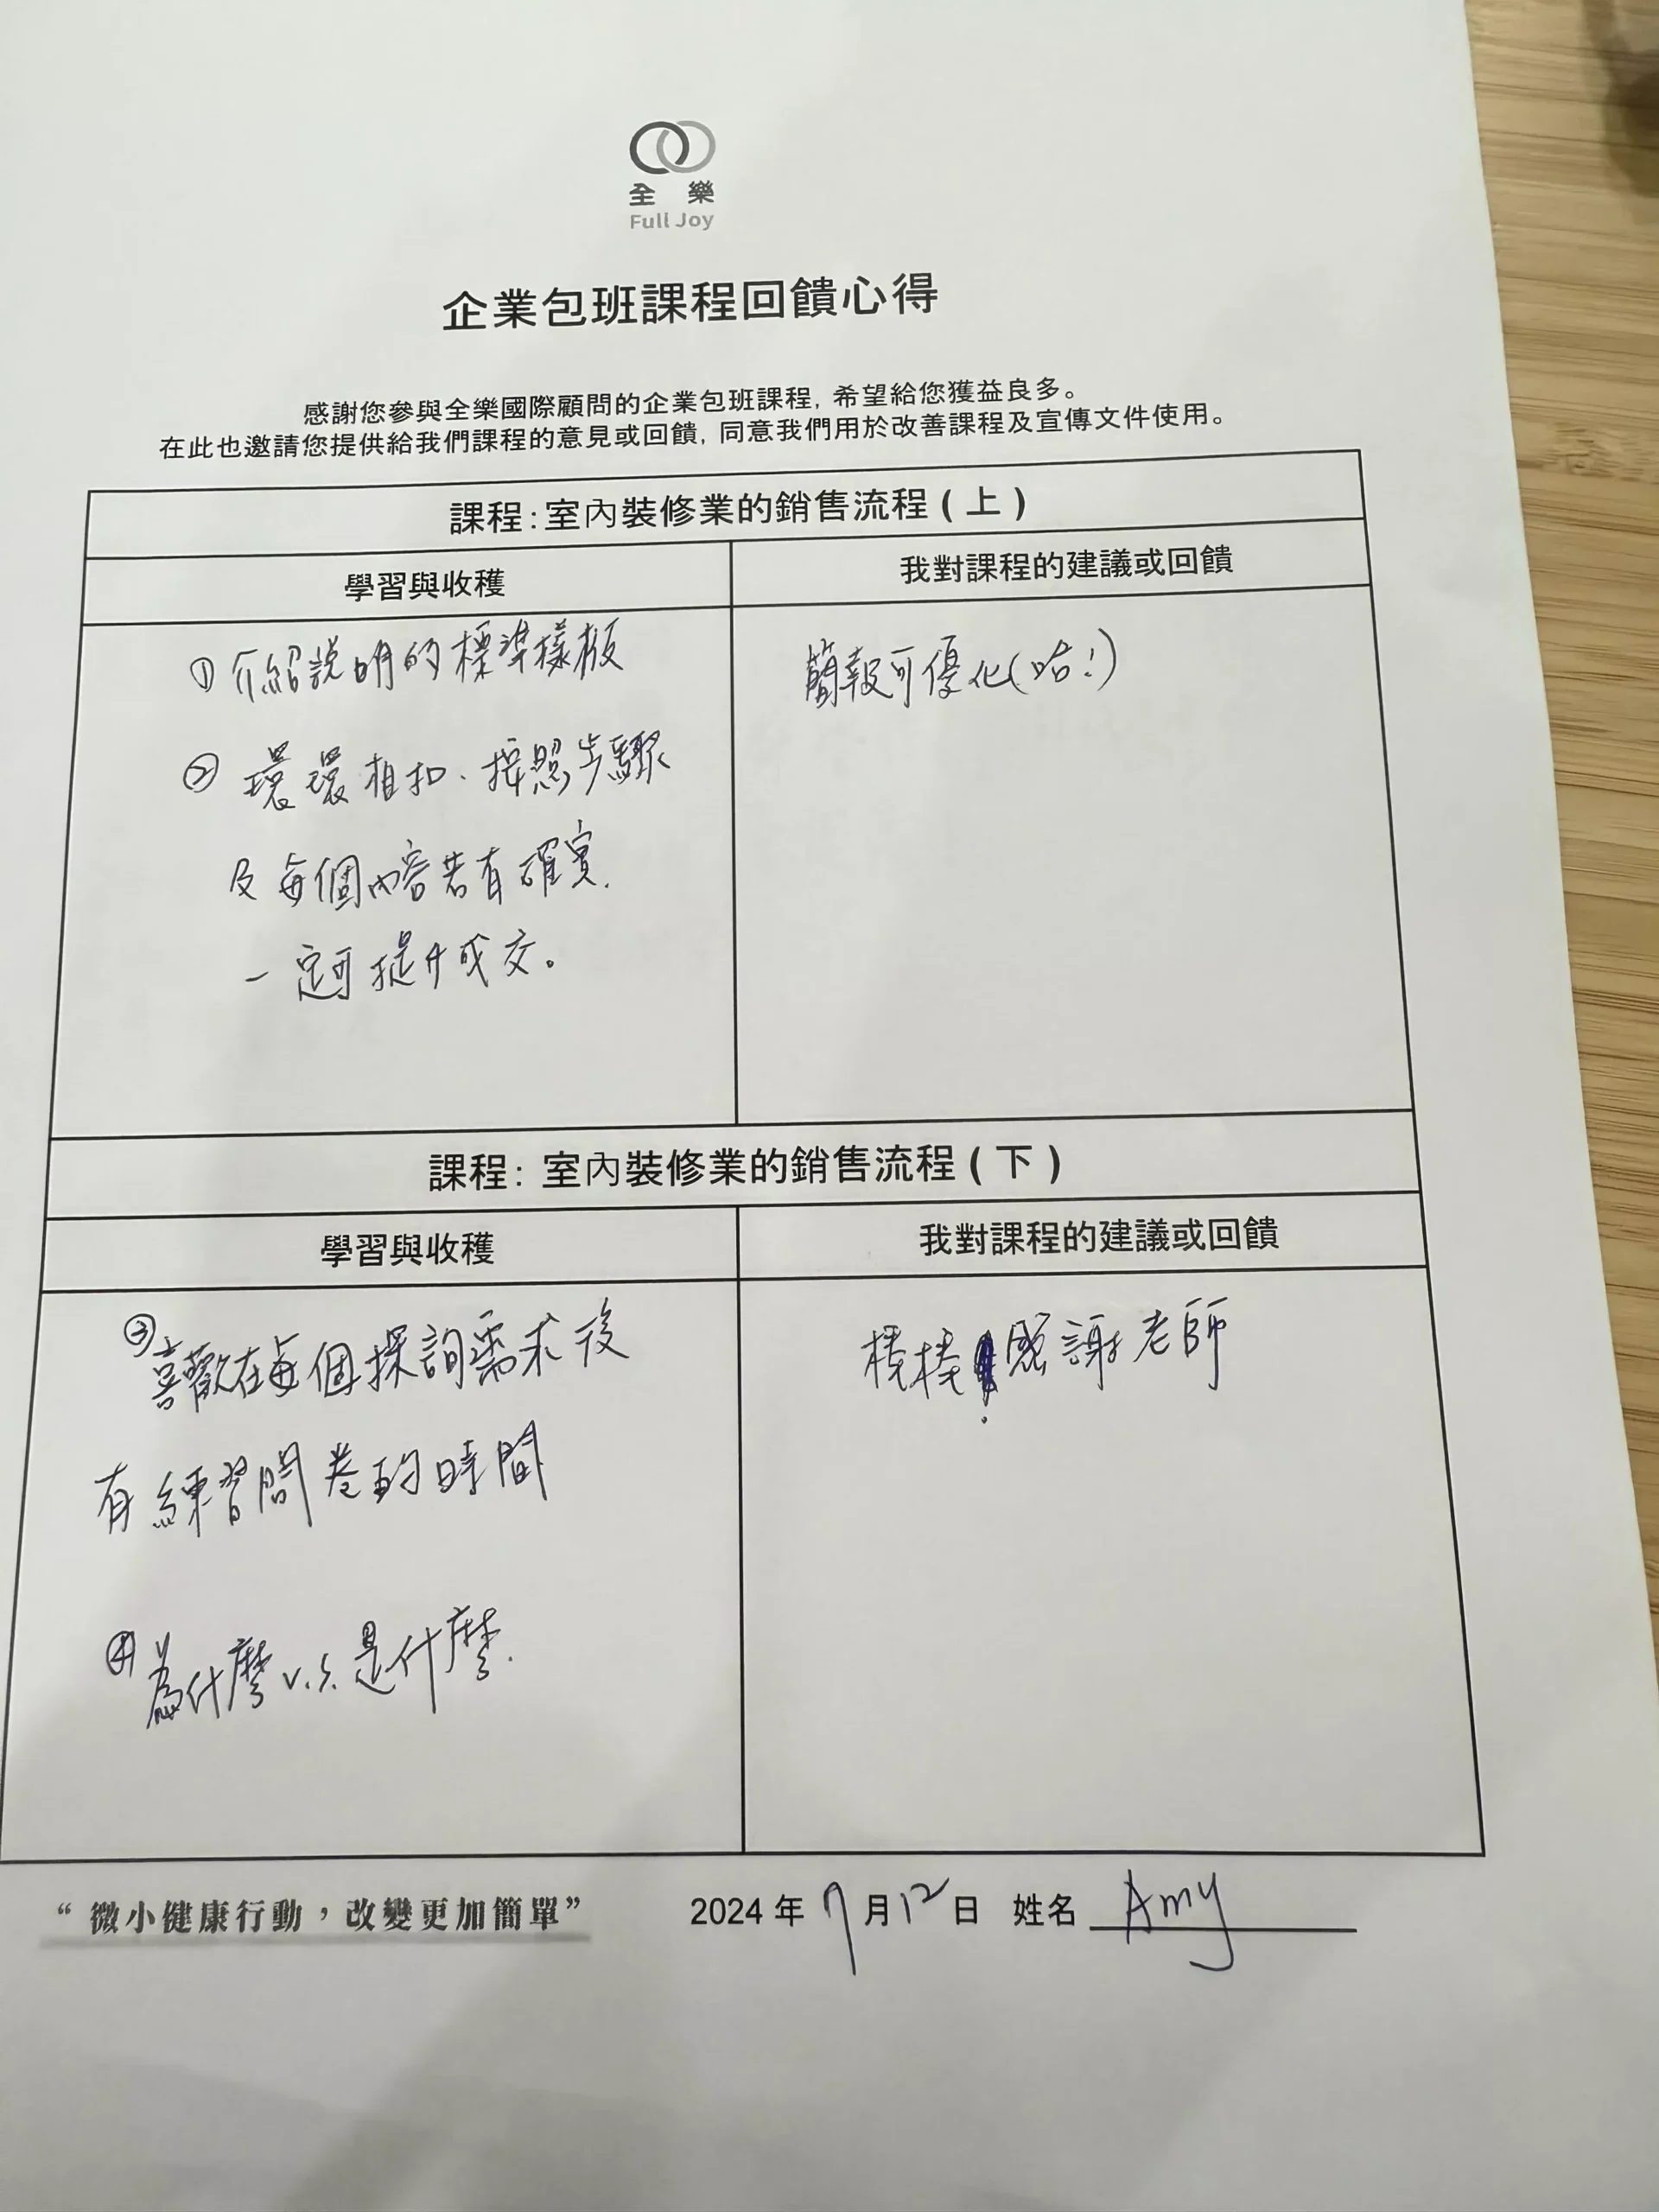 全 樂
Full Joy
企業包班課程回饋心得
感謝您參與全樂國際顧問的企業包班課程, 希望給您獲益良多。
在此也邀請您提供給我們課程的意見或回饋, 同意我們用於改善課程及宣傳文件使用。
課程:室內裝修業的銷售流程(上)
學習與收穫
我對課程的建議或回饋
① 介紹說明的標準樣板
② 環環相扣、按照步驟
及每個內容若有確實.
一定可提升成交。
簡報可優化(哈!)
課程: 室內裝修業的銷售流程(下)
學習與收穫
我對課程的建議或回饋
③ 喜歡在每個探詢需求後
有練習問卷的時間
④ 為什麼 v.s 是什麼.
棒棒!感謝老師
“微小健康行動,改變更加簡單”
2024 年 7 月 12 日 姓名 Amy